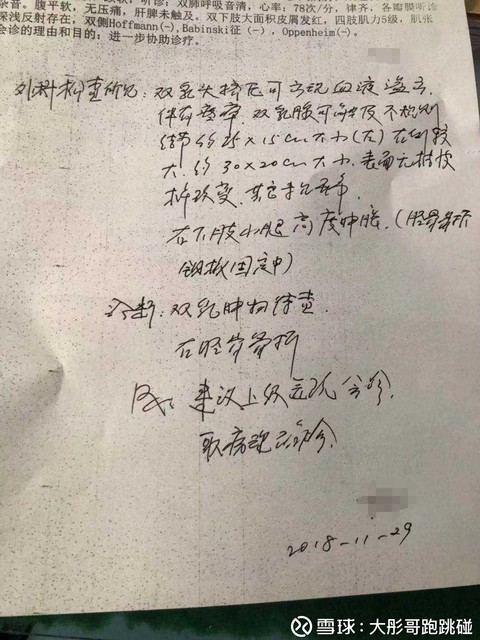 杂音。腹平软，无压痛，肝脾未触及。双下肢大面积皮屑发红，四肢肌力5级，肌张
深浅反射存在，双侧Hoffmann(-),Babinski征（-），Oppenheim(-)。
会诊的理由和目的：进一步协助诊疗。
外科检查所见：双乳头挤压可出现血液溢出，
伴有疼痛，双乳腺可触及不规则
结节约25×15cm大小(左)右侧较
大，约30×20cm大小，表面无
改变，其它未
右下肢小腿高度肿胀。(胫骨骨折
钢板固定中)
诊断：双乳肿物待查
右胫骨骨折
建议上级医院会诊，
取病理
2018-11-29
雪球：大彤哥跑跳碰